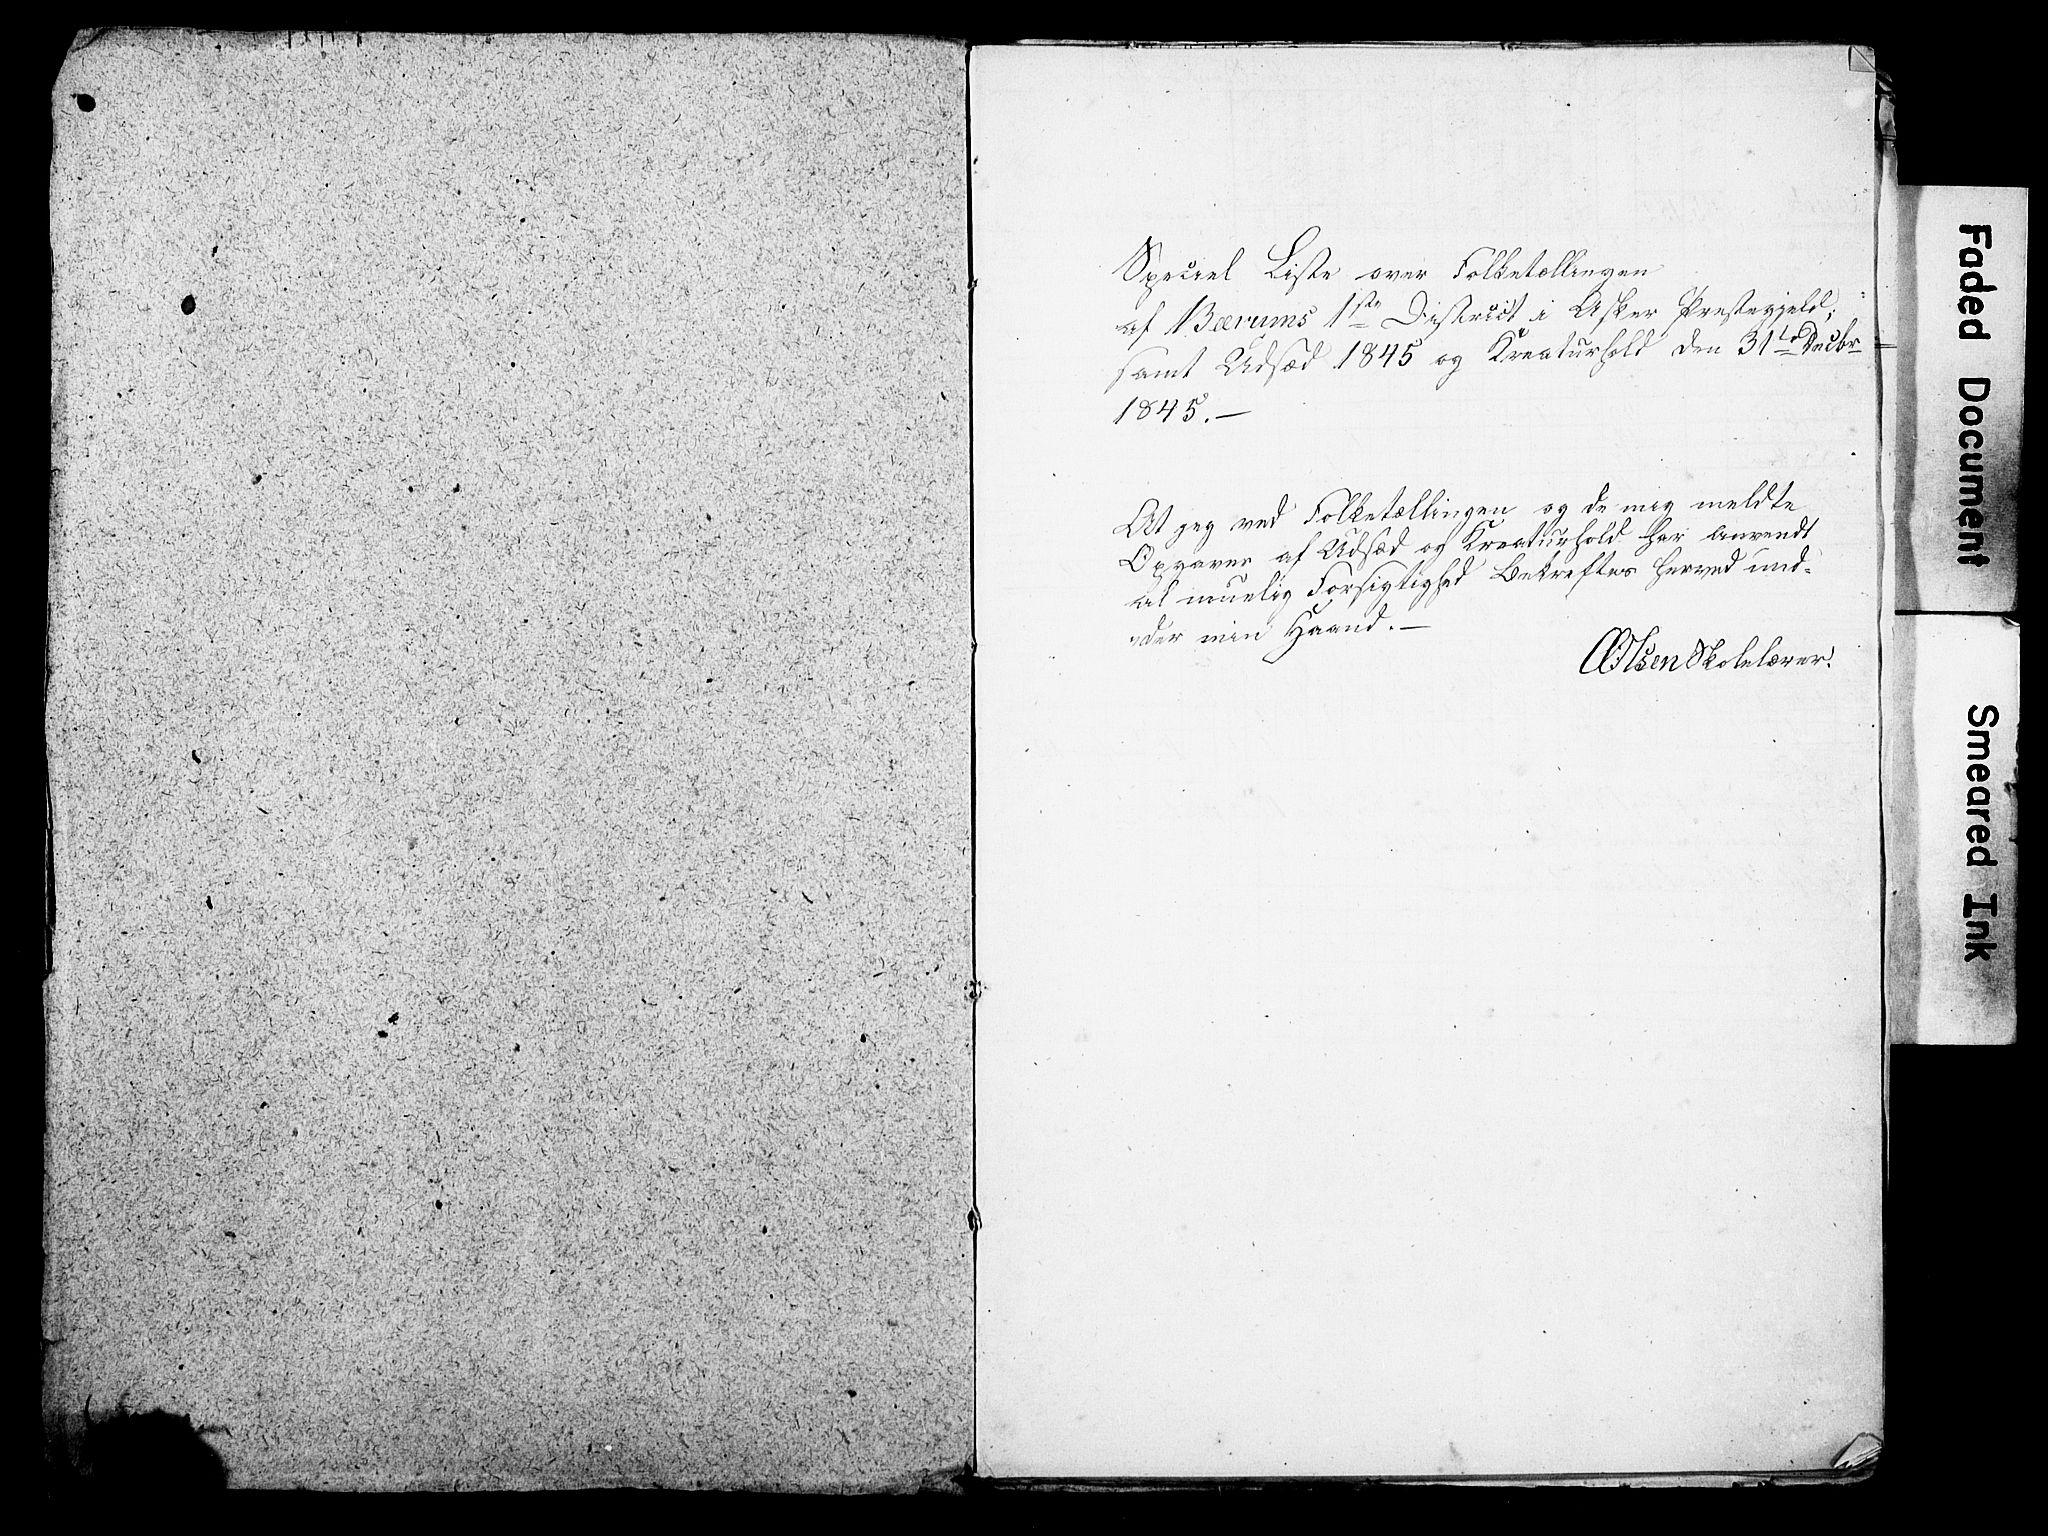 Speciel Liste over Folketællingen
af Bærums 1ste District i Asker Prestegjeld;
samt Udsæd 1845 og Kreaturhold den 31te Decbr
1845.—
At jeg ved Folketællingen og de mig meldte
Opgaver af Udsæd og Kreaturhold har anvendt
al muelig Forsigtighed Bekreftes herved und-
der min Haand.—
Olsen Skolelærer.
Faded Document
Smeared Ink